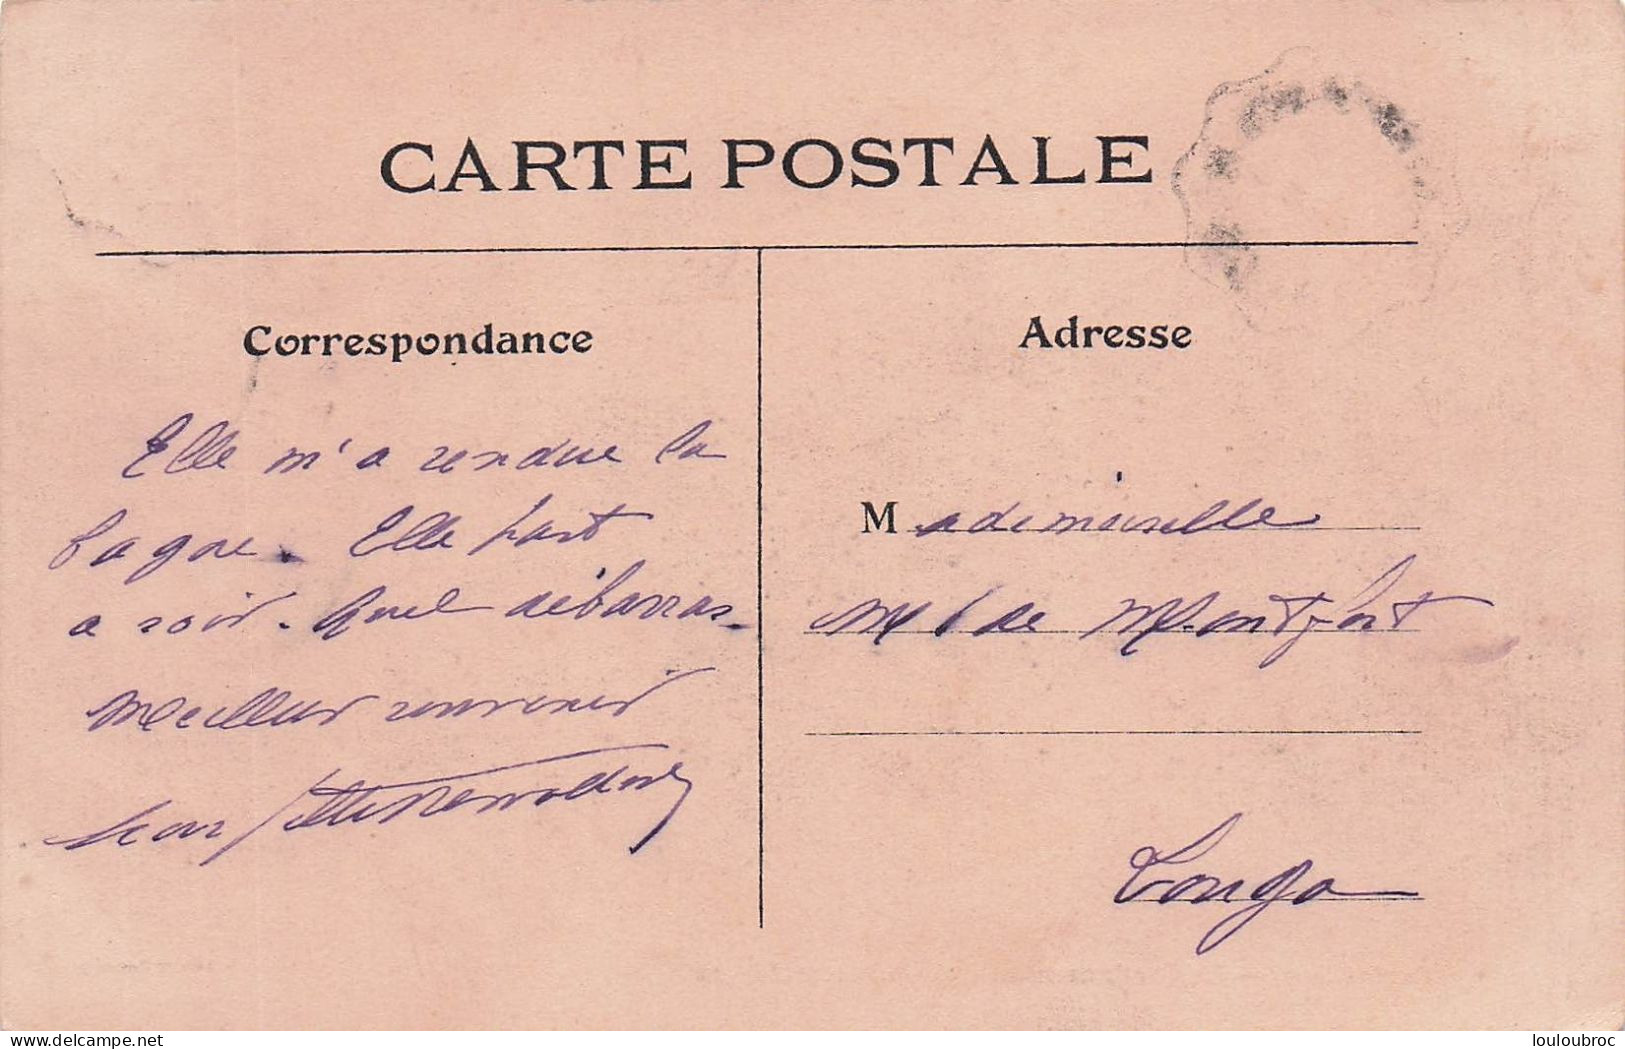 CARTE POSTALE
Correspondance
Adresse
Elle m'a rendue la
bague. Elle part
a soir. Quel débarras.
Meilleur souvenir
Mademoiselle
de Montfort
delcampe.net
louloubroc